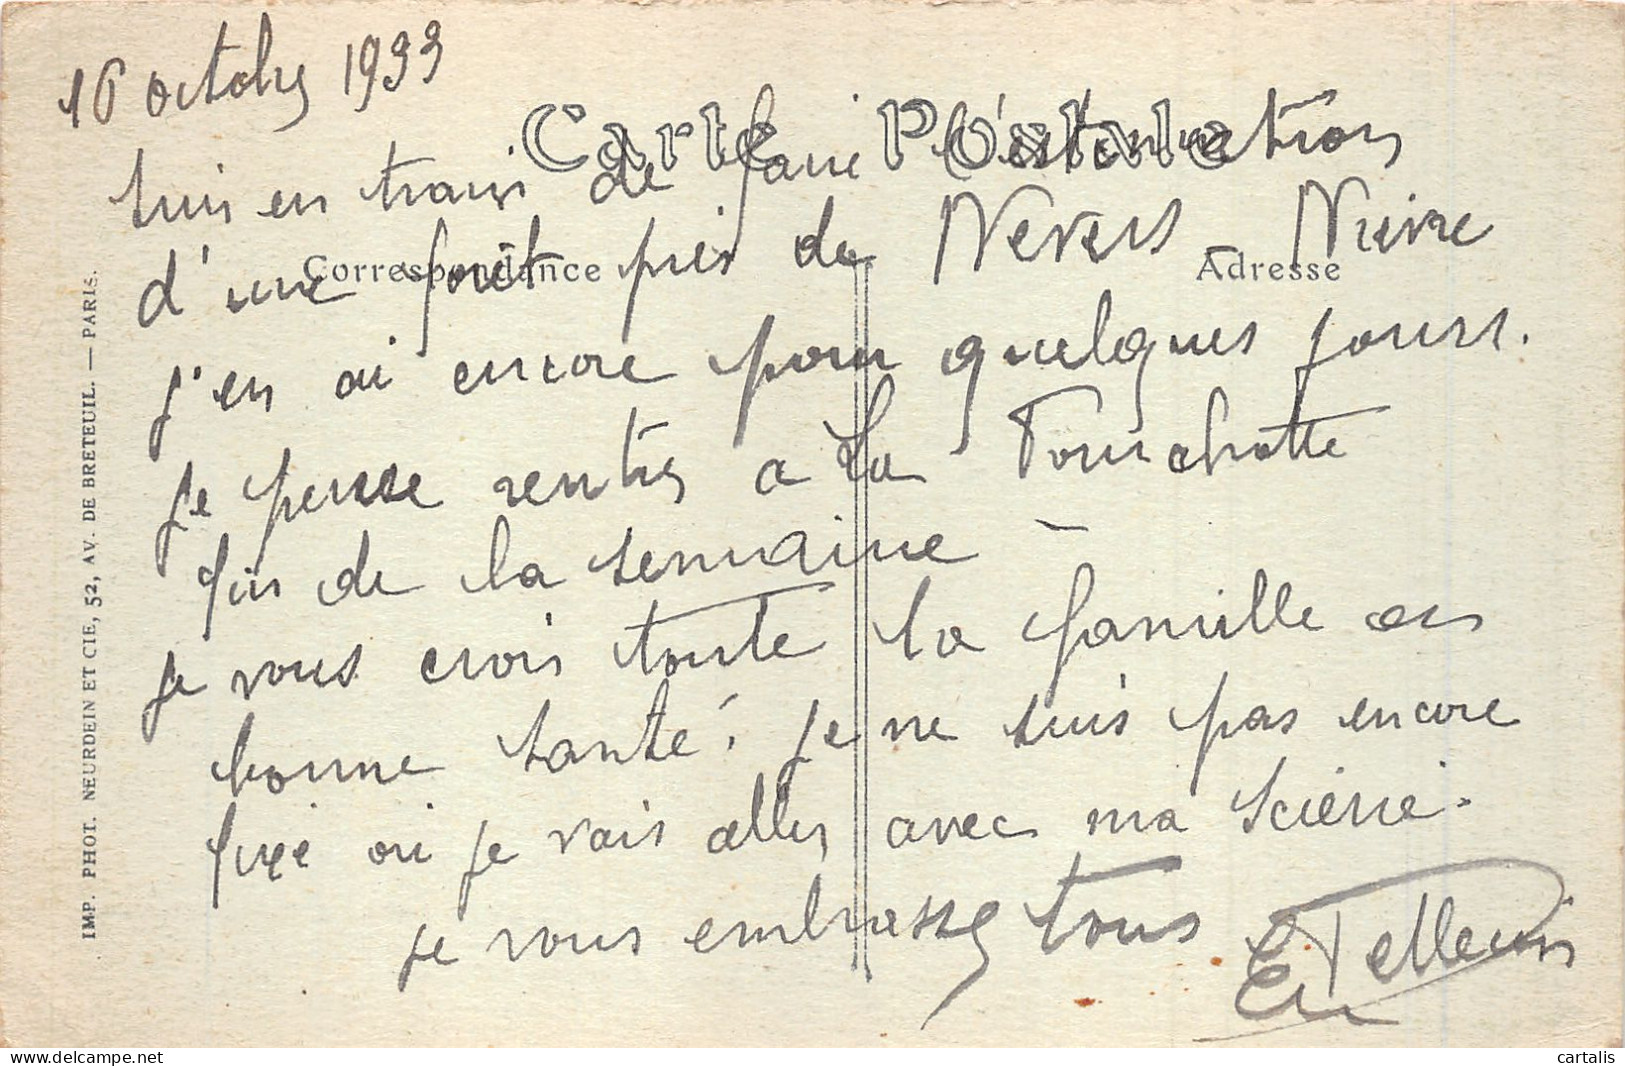 16 octobre 1933
Carte Postale
suis en train de faire l'estimation
d'une forêt près de Nevers Nièvre
Correspondance
Adresse
j'en ai encore pour quelques jours.
je pense rentrer a La Fourchotte
fin de la semaine -
je vous crois toute la famille en
bonne santé. je ne suis pas encore
fixé où je vais aller avec ma scierie.
je vous embrasse tous
IMP. PHOT. NEURDEIN ET CIE, 52, AV. DE BRETEUIL. — PARIS.
cartalis